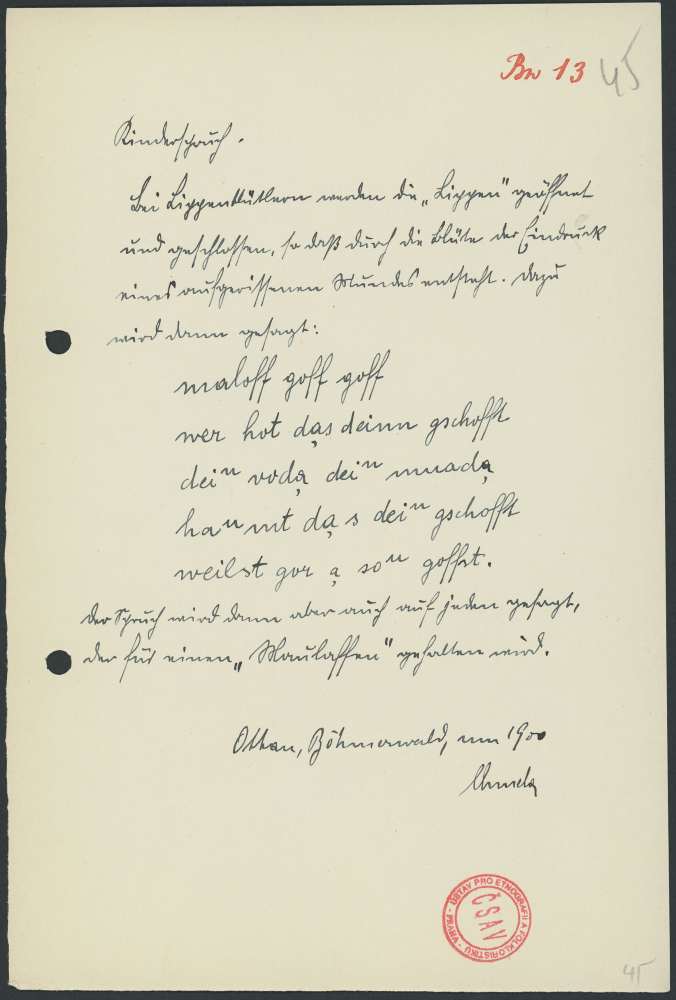 Bw 13 45
Kinderspruch.
Bei Lippenblütlern werden die „Lippen" geöffnet
und geschlossen, so daß durch die Blüte der Eindruck
eines aufgerissenen Mundes entsteht. Dazu
wird dann gesagt:
maloff goff goff
wer hot dạs deinn gschofft
deiⁿ vodạ deiⁿ muadạ
haⁿ nit dạ s deiⁿ gschofft
weilst gor ạ soⁿ goffst.
Der Spruch wird dann aber auch auf jeden gesagt,
der für einen „Maulaffen" gehalten wird.
Ottau, Böhmerwald, um 1900
ÚSTAV PRO ETNOGRAFII A FOLKLORISTIKU - PRAHA -
ČSAV
45